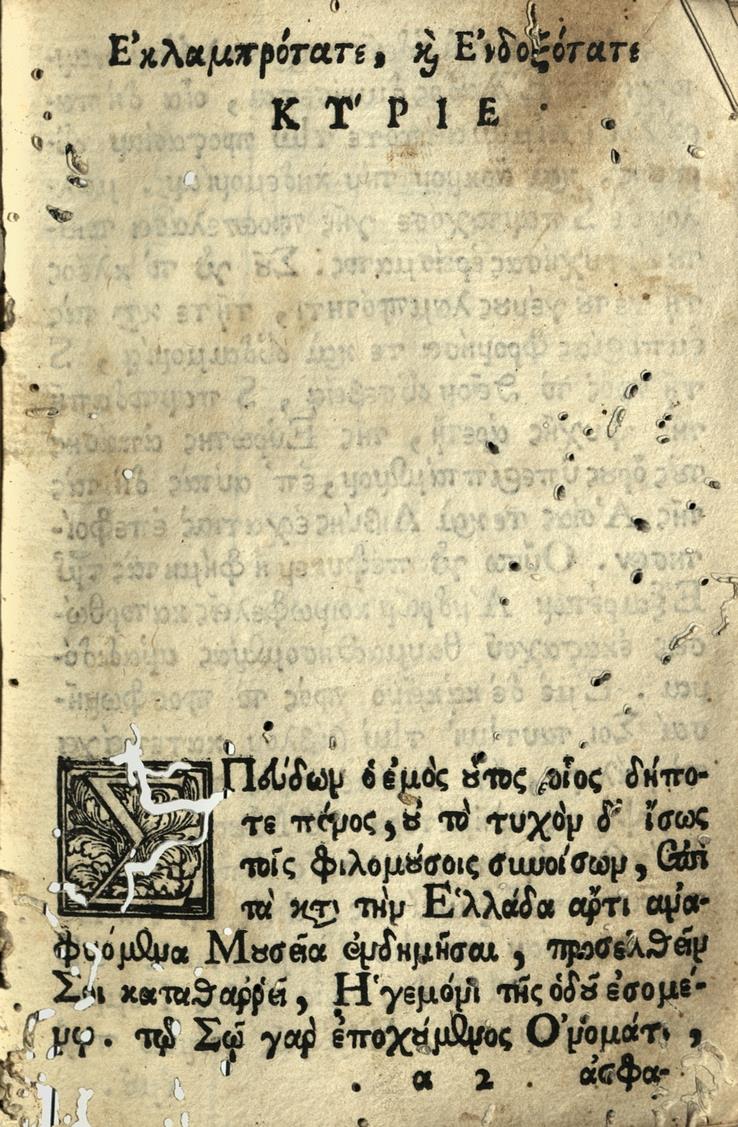 Ἐκλαμπρότατε, ϗ Ἐνδοξότατε
ΚΎΡΙΕ
ΣΠούδων ὁ ἐμὸς ὗτος οἷος δήπο-
τε πόνος, ȣ̓ τὸ τυχὸν δ' ἴσως
τοῖς φιλομȣ́σοις συνοίσων, ἐπὶ
τὰ κτ̀ τὴν Ἑλλάδα ἄρτι ἀνα-
φυόμϑμα Μȣσεῖα ἐνδημῆσαι, προσελθεῖν
Σοι καταθαῤῥεῖ, Ἡγεμόνι τῆς ὁδȣ͂ ἐσομέ-
νῳ. τῷ Σῷ γὰρ ἐποχȣ́μενος Ὀνομάτι,
α 2 ἀσφα-